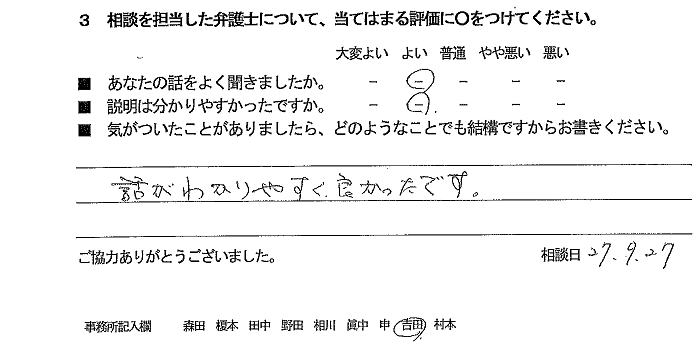 3 相談を担当した弁護士について、当てはまる評価に○をつけてください。
大変よい よい 普通 やや悪い 悪い
■ あなたの話をよく聞きましたか。 - - - - -
■ 説明は分かりやすかったですか。 - - - - -
■ 気がついたことがありましたら、どのようなことでも結構ですからお書きください。
話がわかりやすく、良かったです。
ご協力ありがとうございました。 相談日 27.9.27
事務所記入欄 森田 榎本 田中 野田 相川 眞中 申 吉田 村本